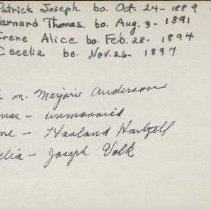 Patrick Joseph bo. Oct-24-1889
Bernard Thomas bo. Aug. 9- 1891
Irene Alice bo. Feb. 28- 1894
Cecelia bo. Nov. 26- 1897
m. Marjorie Anderson
- unmarried
- Harland Hartzell
- Joseph Volk